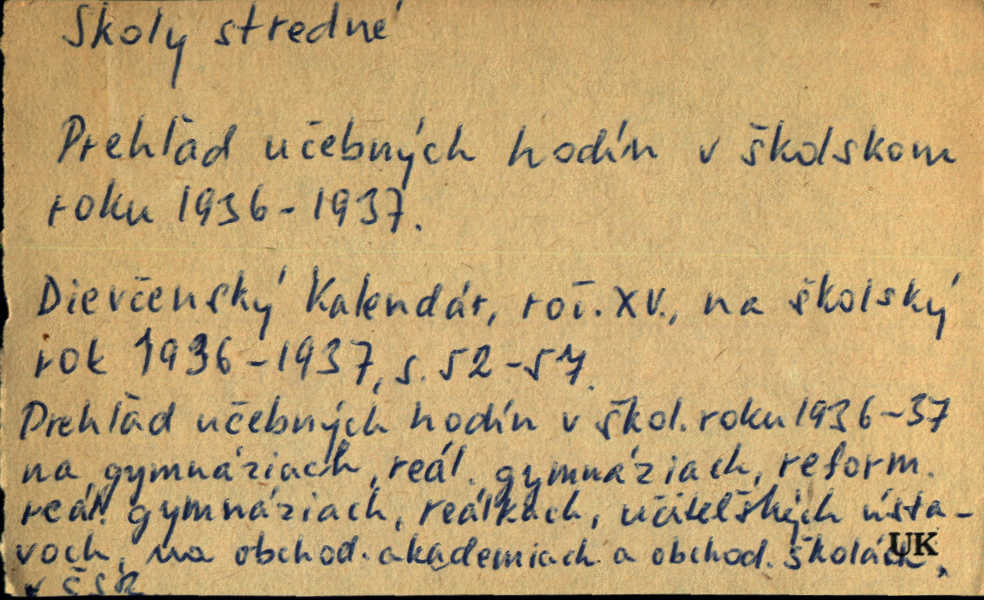 Školy stredné
Prehľad učebných hodín v školskom
roku 1936-1937.
Dievčenský Kalendár, roč. XV., na školský
rok 1936-1937, s. 52-57.
Prehľad učebných hodín v škol. roku 1936-37
na gymnáziach, reál. gymnáziach, reform.
reál. gymnáziach, reálkach, učiteľských ústa-
voch, na obchod. akademiach a obchod. školách
v ČSR
UK